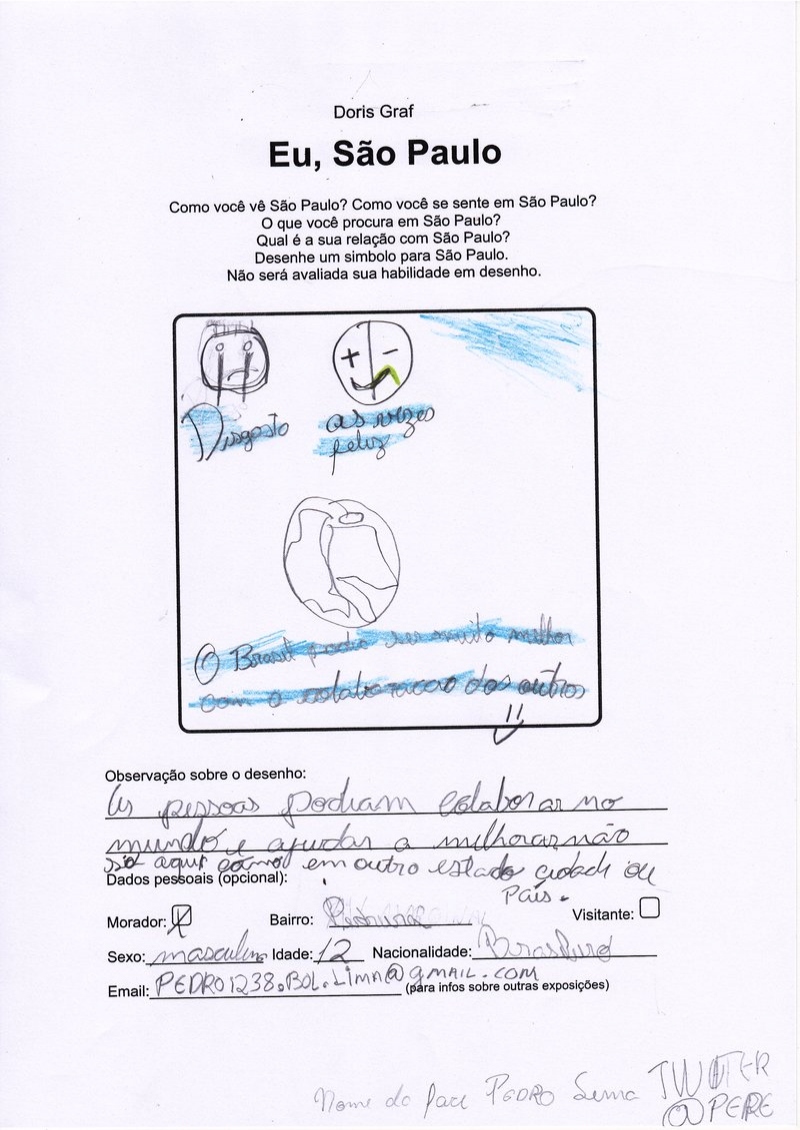 Doris Graf
Eu, São Paulo
Como você vê São Paulo? Como você se sente em São Paulo?
O que você procura em São Paulo?
Qual é a sua relação com São Paulo?
Desenhe um simbolo para São Paulo.
Não será avaliada sua habilidade em desenho.
+ -
Disgosto
as vezes
feliz
O Brasil podia ser muito melhor
com a colaboracao dos outros
!!
Observação sobre o desenho:
As pessoas podiam colaborar no
mundo e ajudar a melhorar não
só aqui como em outro estado cidade ou
País.
Dados pessoais (opcional):
Morador: X Bairro: Visitante:
Sexo: masculino Idade: 12 Nacionalidade:
Email: PEDRO1238.BOL.Lima@gmail.com (para infos sobre outras exposições)
Nome do face PEDRO
TWITER